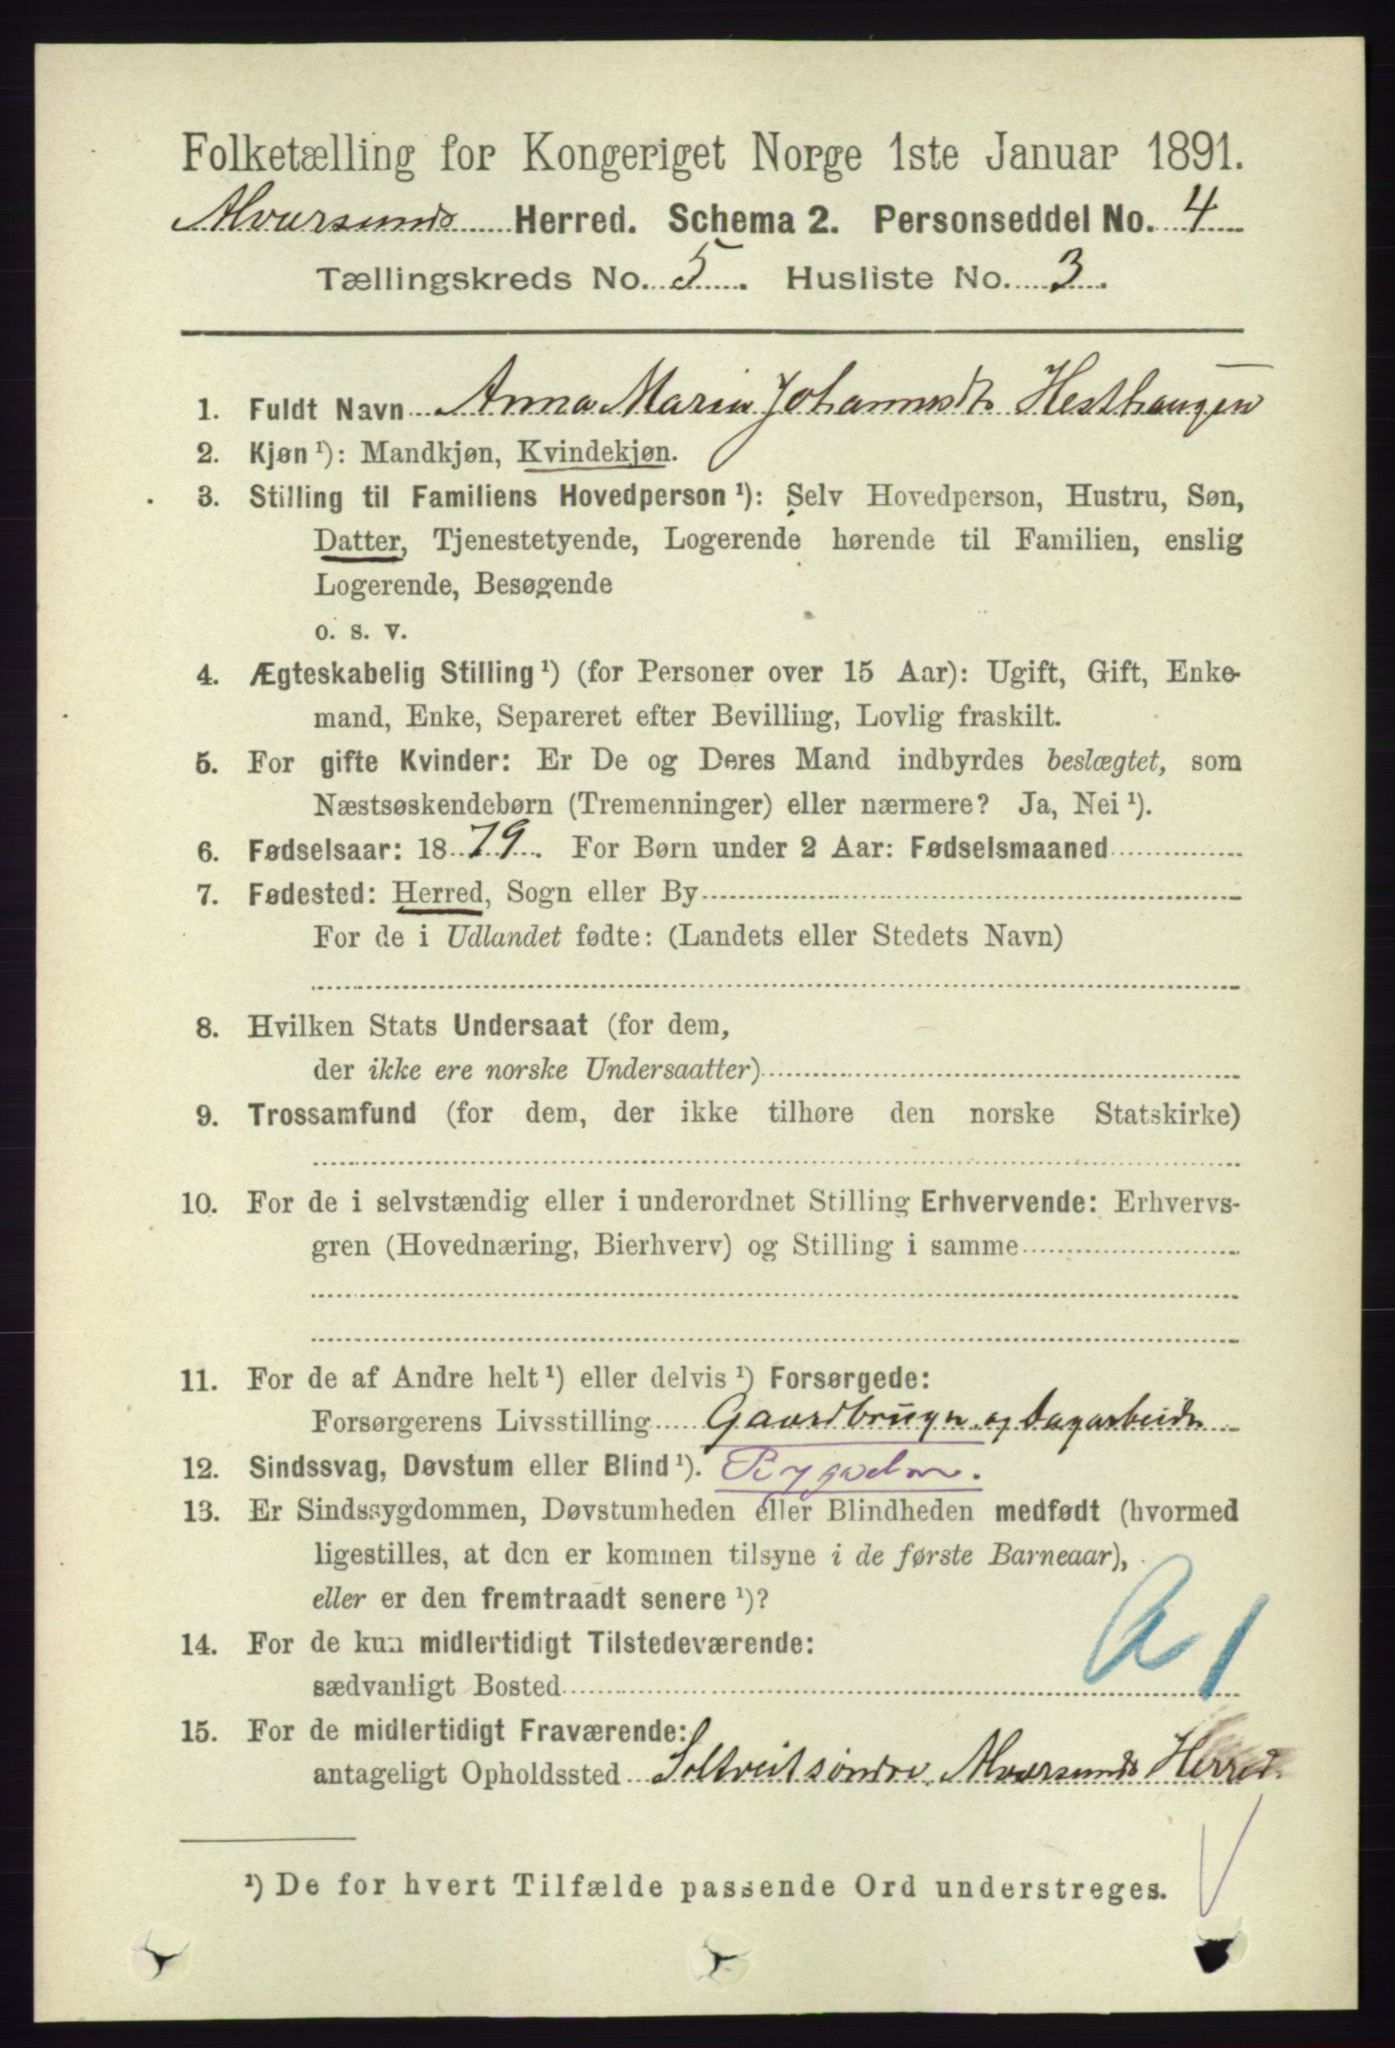 Folketælling for Kongeriget Norge 1ste Januar 1891.
Alversunds Herred. Schema 2. Personseddel No. 4
Tællingskreds No. 5. Husliste No. 3.
1. Fuldt Navn Anna Maria Johannesdtr Hesthaugen
2. Kjøn ¹): Mandkjøn, Kvindekjøn.
3. Stilling til Familiens Hovedperson ¹): Selv Hovedperson, Hustru, Søn,
Datter, Tjenestetyende, Logerende hørende til Familien, enslig
Logerende, Besøgende
o. s. v.
4. Ægteskabelig Stilling ¹) (for Personer over 15 Aar): Ugift, Gift, Enke-
mand, Enke, Separeret efter Bevilling, Lovlig fraskilt.
5. For gifte Kvinder: Er De og Deres Mand indbyrdes beslægtet, som
Næstsøskendebørn (Tremenninger) eller nærmere? Ja, Nei ¹).
6. Fødselsaar: 1879. For Børn under 2 Aar: Fødselsmaaned
7. Fødested: Herred, Sogn eller By
For de i Udlandet fødte: (Landets eller Stedets Navn)
8. Hvilken Stats Undersaat (for dem,
der ikke ere norske Undersaatter)
9. Trossamfund (for dem, der ikke tilhøre den norske Statskirke)
10. For de i selvstændig eller i underordnet Stilling Erhvervende: Erhvervs-
gren (Hovednæring, Bierhverv) og Stilling i samme
11. For de af Andre helt ¹) eller delvis ¹) Forsørgede:
Forsørgerens Livsstilling Gaardbruger og Dagarbeider
12. Sindssvag, Døvstum eller Blind ¹).
13. Er Sindssygdommen, Døvstumheden eller Blindheden medfødt (hvormed
ligestilles, at den er kommen tilsyne i de første Barneaar),
eller er den fremtraadt senere ¹)?
14. For de kun midlertidigt Tilstedeværende:
sædvanligt Bosted
15. For de midlertidigt Fraværende:
antageligt Opholdssted Soltveit søndre, Alversunds Herred
¹) De for hvert Tilfælde passende Ord understreges.